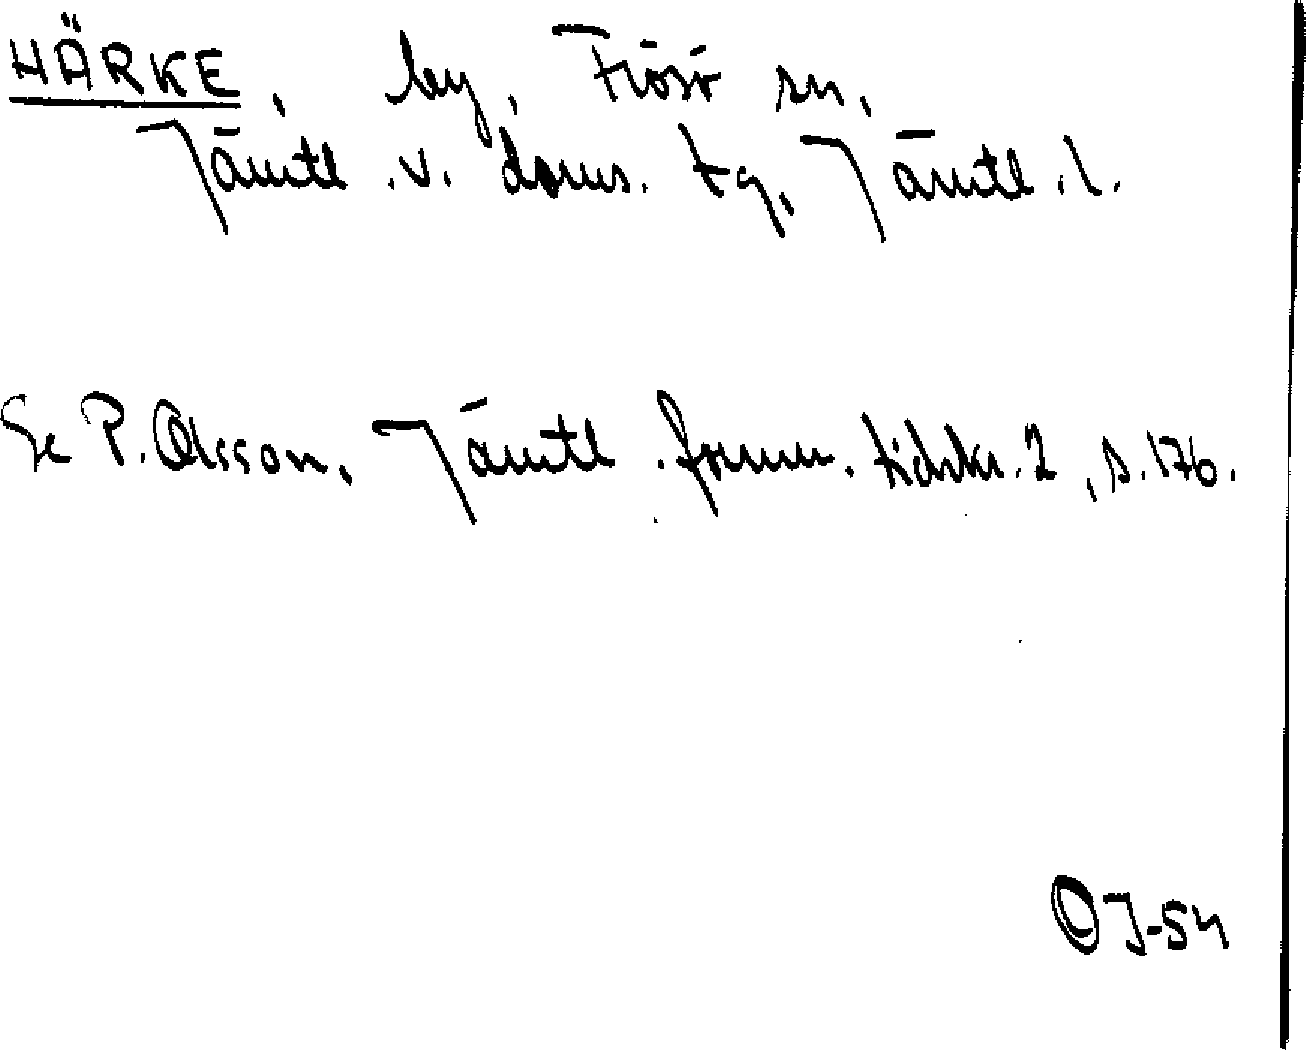 HÄRKE, by, Frösö sn,
Jämtl. v. doms. tg, Jämtl. l.
Se P. Olsson, Jämtl. fornm. tidskr. 2, s. 176.
OJ-54